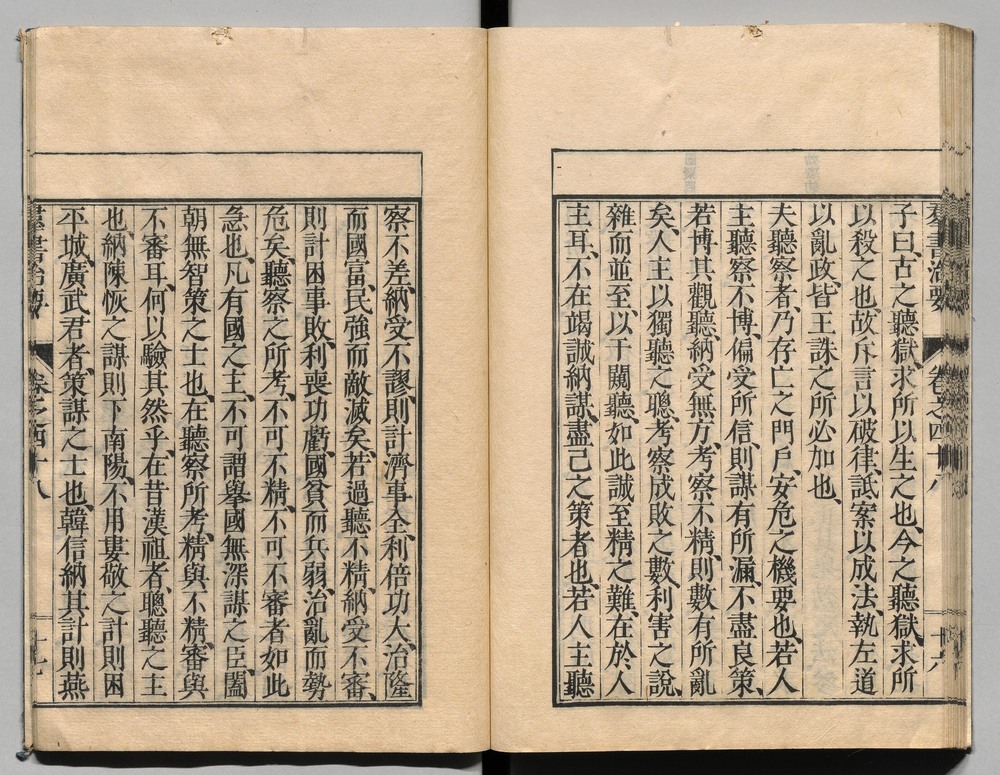 羣書治要 卷之四十八 十八
子曰、古之聽獄、求所以生之也、今之聽獄、求所
以殺之也、故斥言以破律、詆案以成法、執左道
以亂政、皆王誅之所必加也、
夫聽察者、乃存亡之門戶、安危之機要也、若人
主聽察不博、偏受所信、則謀有所漏、不盡良策、
若博其觀聽、納受無方、考察不精、則數有所亂
矣、人主以獨聽之聰、考察成敗之數、利害之說、
雜而並至、以干闚聽、如此、誠至精之難、在於人
主耳、不在竭誠納謀、盡己之策者也、若人主聽
察不差、納受不謬、則計濟事全、利倍功大、治隆
而國富、民強而敵滅矣、若過聽不精、納受不審、
則計困事敗、利喪功虧、國貧而兵弱、治亂而勢
危矣、聽察之所考、不可不精、不可不審者如此
急也、凡有國之主、不可謂舉國無深謀之臣、闔
朝無智策之士也、在聽察所考、精與不精、審與
不審耳、何以驗其然乎、在昔漢祖者、聰聽之主
也、納陳恢之謀、則下南陽、不用婁敬之計、則困
平城、廣武君者、策謀之士也、韓信納其計、則燕
羣書治要 卷之四十八 十九